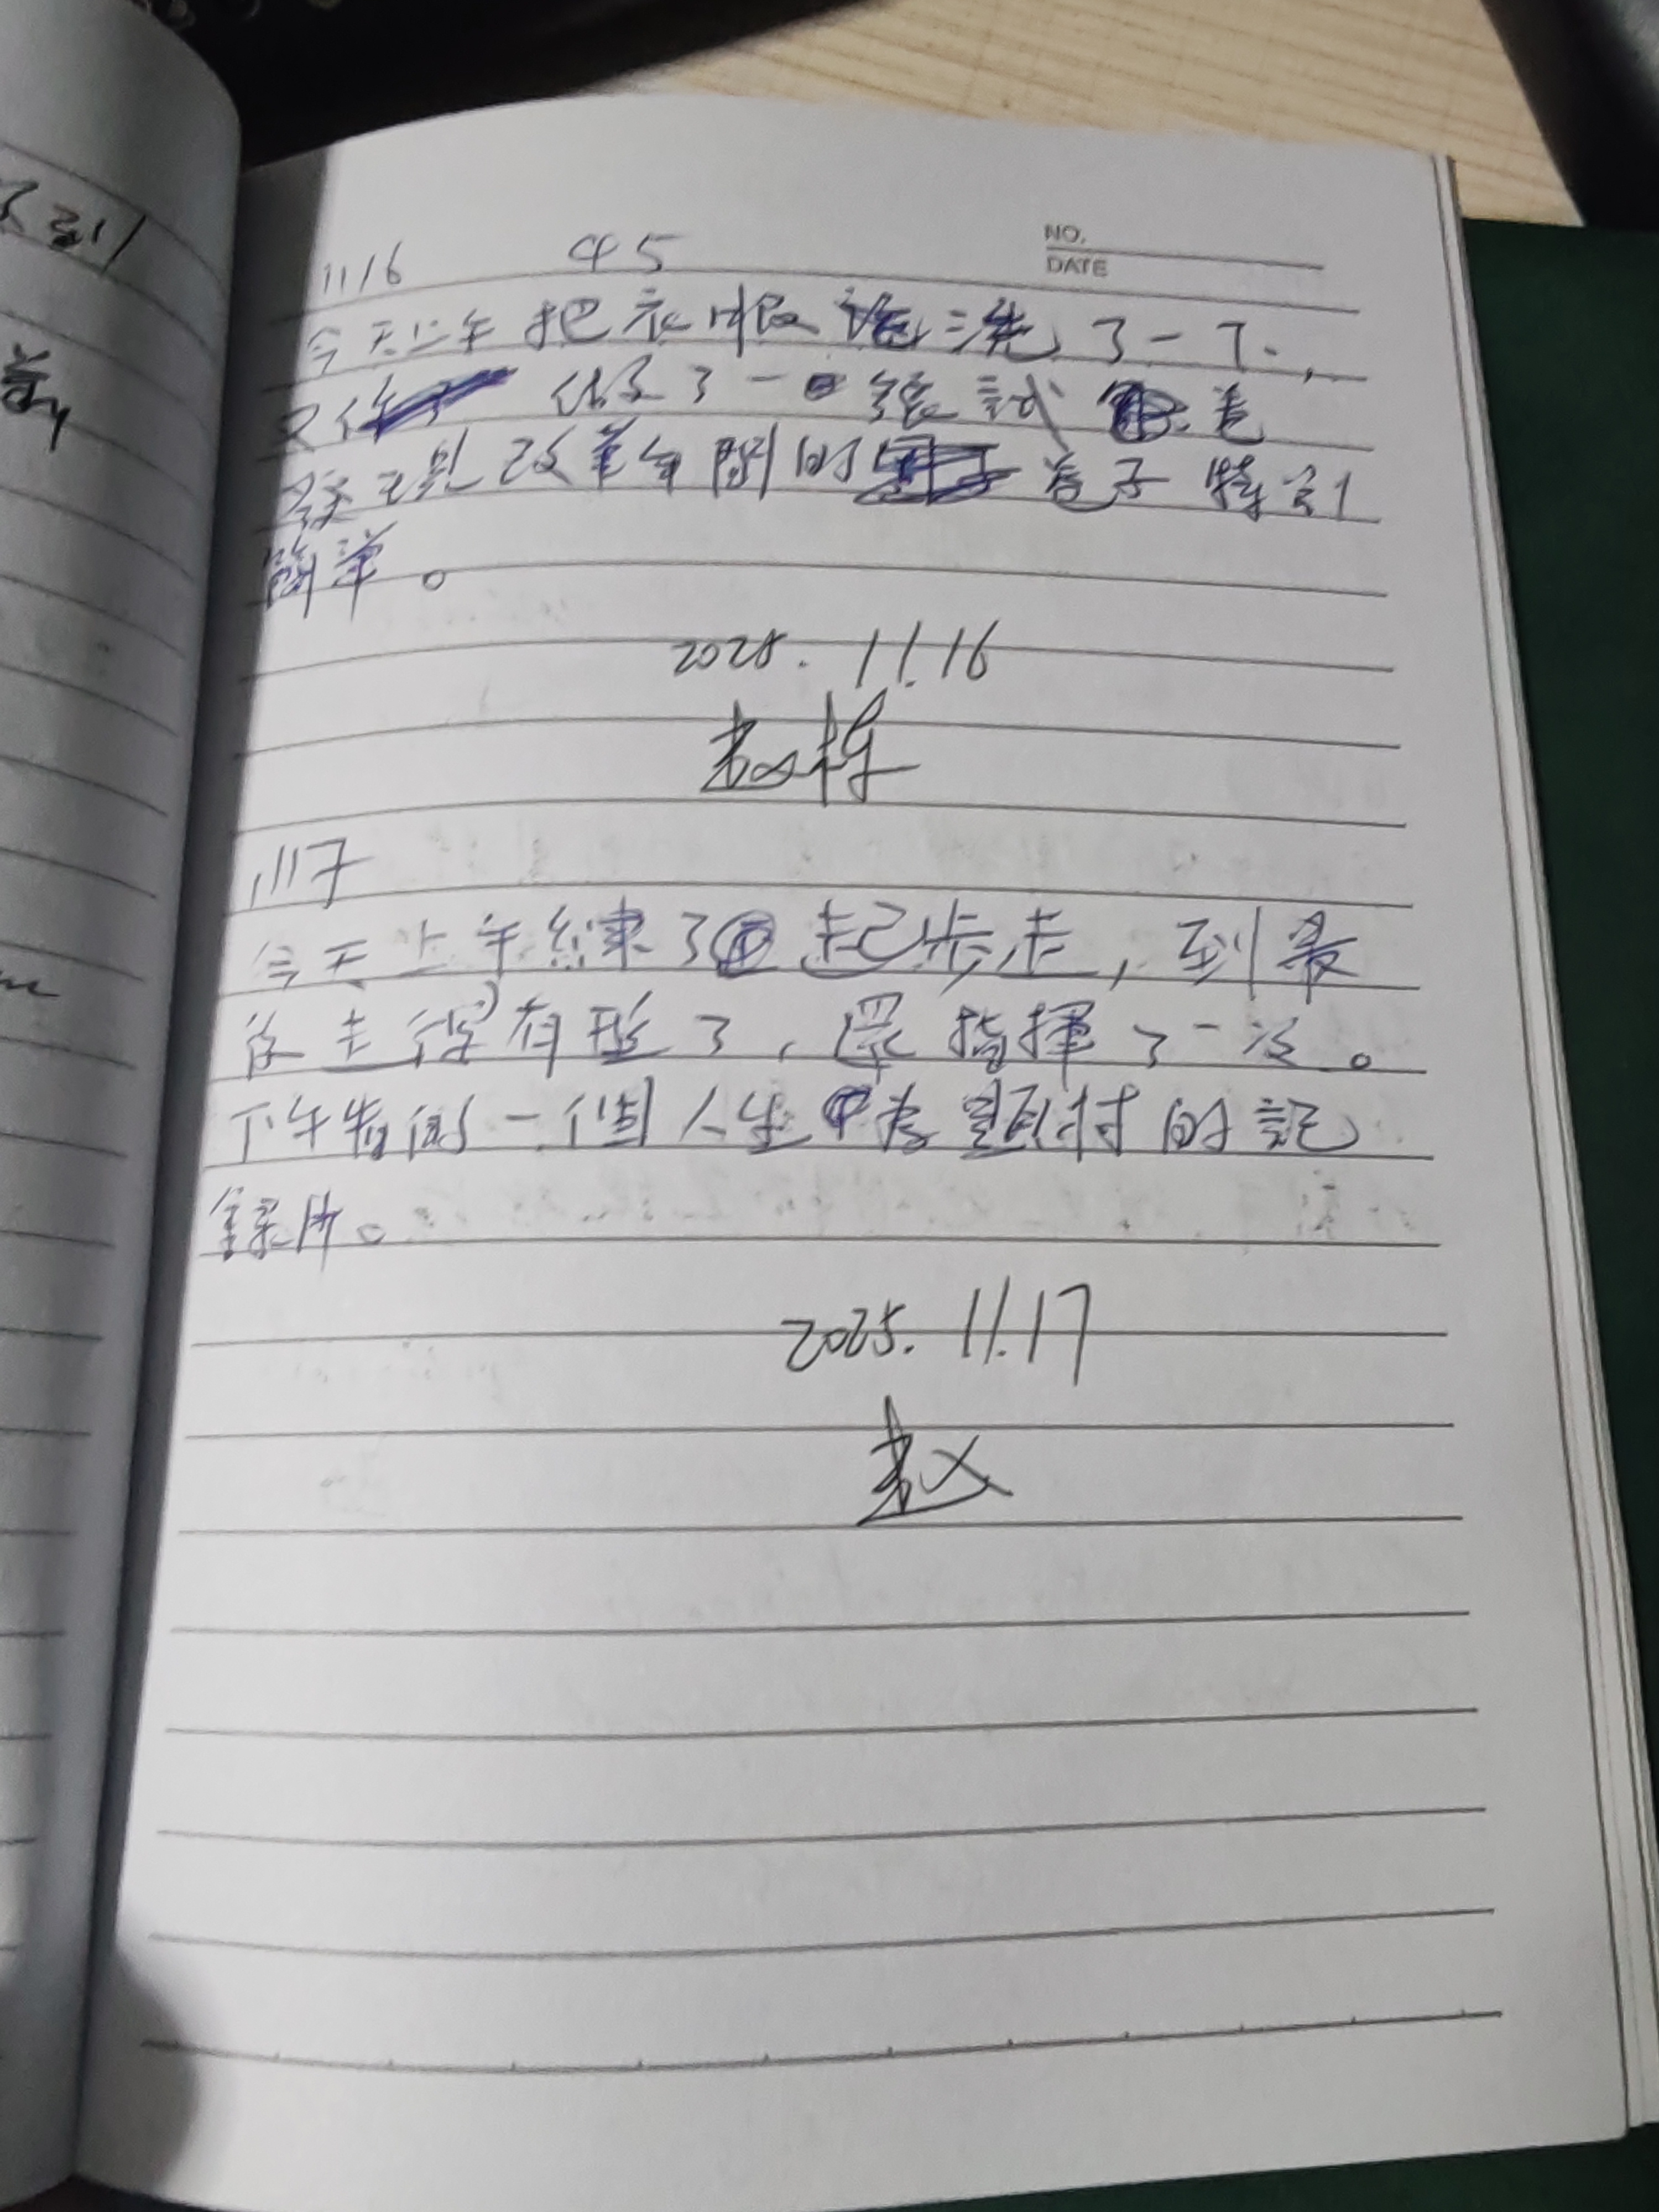 NO.
DATE
1116 45
今天上午把衣服洗了一下,
又做了一張試卷
發現改革年間的卷子特別
簡單。
2025.11.16
1117
今天上午練了起步走,到最
後走得有形了,還指揮了一次。
下午看一個人生題材的記
錄片。
2025.11.17
赵